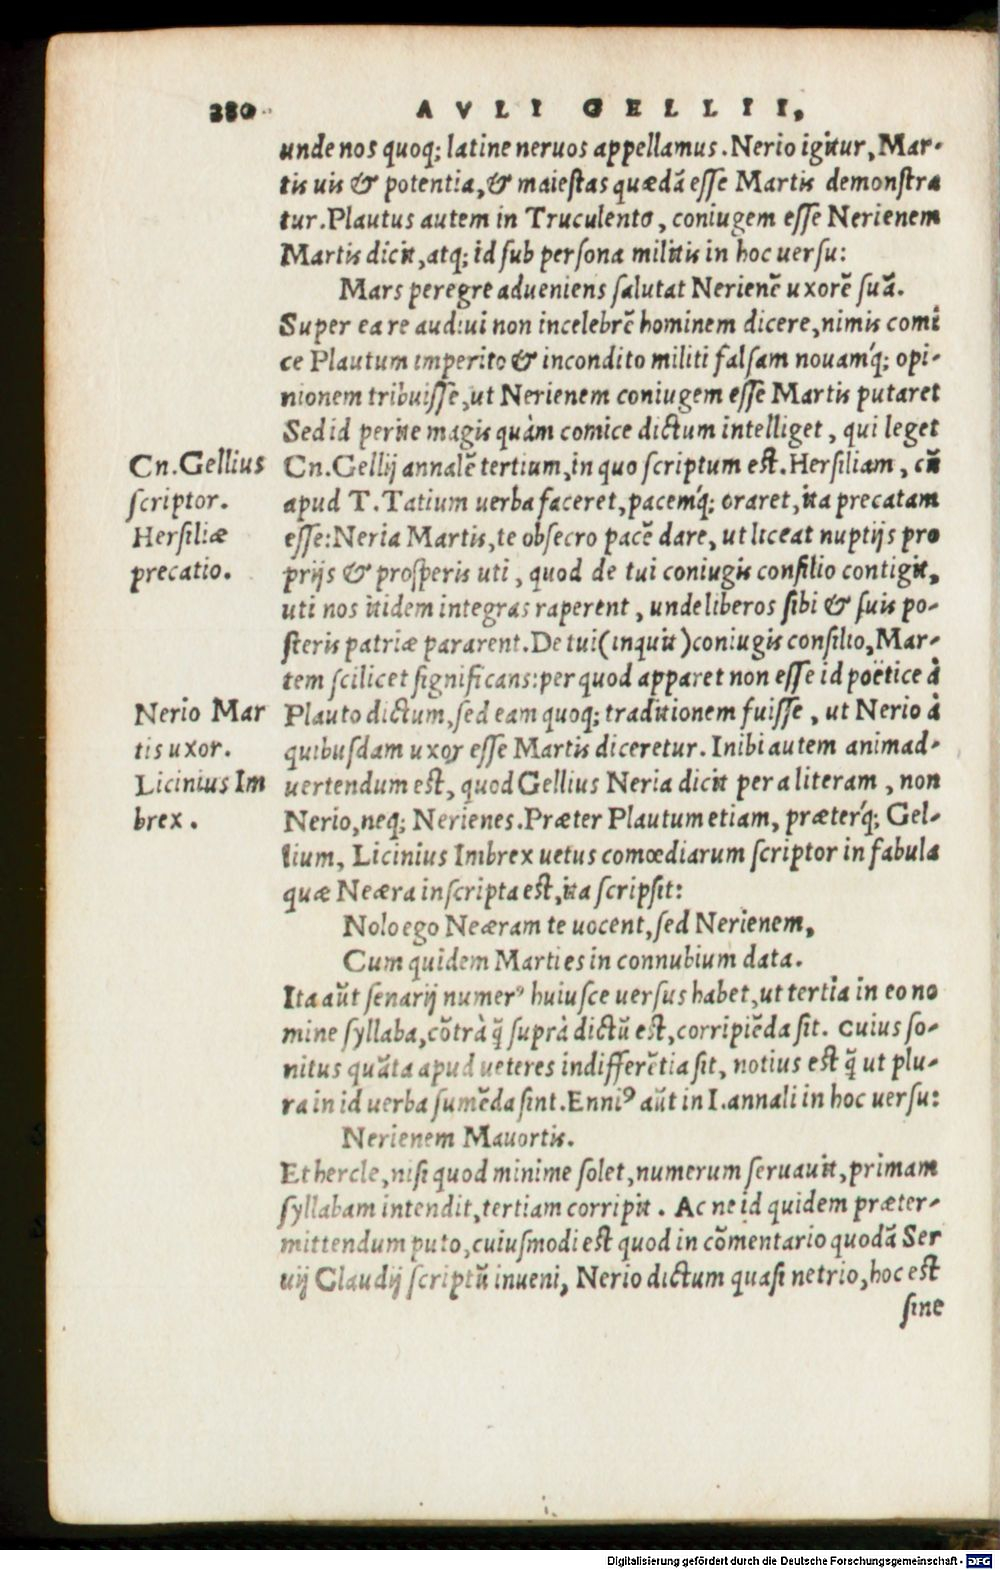 280 AVLI GELLII,
unde nos quoq; latine neruos appellamus. Nerio igitur, Mar-
tis uis & potentia, & maiestas quædā esse Martis demonstra
tur. Plautus autem in Truculento, coniugem esse Nerienem
Martis dicit, atq; id sub persona militis in hoc uersu:
Mars peregre adueniens salutat Nerienē uxorē suā.
Super ea re audiui non incelebrē hominem dicere, nimis comi
ce Plautum imperito & incondito militi falsam nouamq́; opi-
nionem tribuisse, ut Nerienem coniugem esse Martis putaret
Sed id perite magis quàm comice dictum intelliget, qui leget
Cn. Gellij annalē tertium, in quo scriptum est. Hersiliam, cū
apud T. Tatium uerba faceret, pacemq́; oraret, ita precatam
esse: Neria Martis, te obsecro pacē dare, ut liceat nuptijs pro
prijs & prosperis uti, quod de tui coniugis consilio contigit,
uti nos itidem integras raperent, unde liberos sibi & suis po-
steris patriæ pararent. De tui (inquit) coniugis consilio, Mar-
tem scilicet significans: per quod apparet non esse id poëtice à
Plauto dictum, sed eam quoq; traditionem fuisse, ut Nerio à
quibusdam uxor esse Martis diceretur. Inibi autem animad-
uertendum est, quod Gellius Neria dicit per a literam, non
Nerio, neq; Nerienes. Præter Plautum etiam, præterq́; Gel-
lium, Licinius Imbrex uetus comœdiarum scriptor in fabula
quæ Neæra inscripta est, ita scripsit:
Nolo ego Neæram te uocent, sed Nerienem,
Cum quidem Marti es in connubium data.
Ita aūt senarij numerꝰ huiusce uersus habet, ut tertia in eo no
mine syllaba, cōtrà q̄ suprà dictū est, corripiēda sit. Cuius so-
nitus quāta apud ueteres indifferētia sit, notius est q̄ ut plu-
ra in id uerba sumēda sint. Enniꝰ aūt in I. annali in hoc uersu:
Nerienem Mauortis.
Et hercle, nisi quod minime solet, numerum seruauit, primam
syllabam intendit, tertiam corripit. Ac ne id quidem præter-
mittendum puto, cuiusmodi est quod in cōmentario quodā Ser
uij Claudij scriptū inueni, Nerio dictum quasi netrio, hoc est
sine
Cn. Gellius
scriptor.
Hersiliæ
precatio.
Nerio Mar
tis uxor.
Licinius Im
brex.
Digitalisierung gefördert durch die Deutsche Forschungsgemeinschaft - DFG